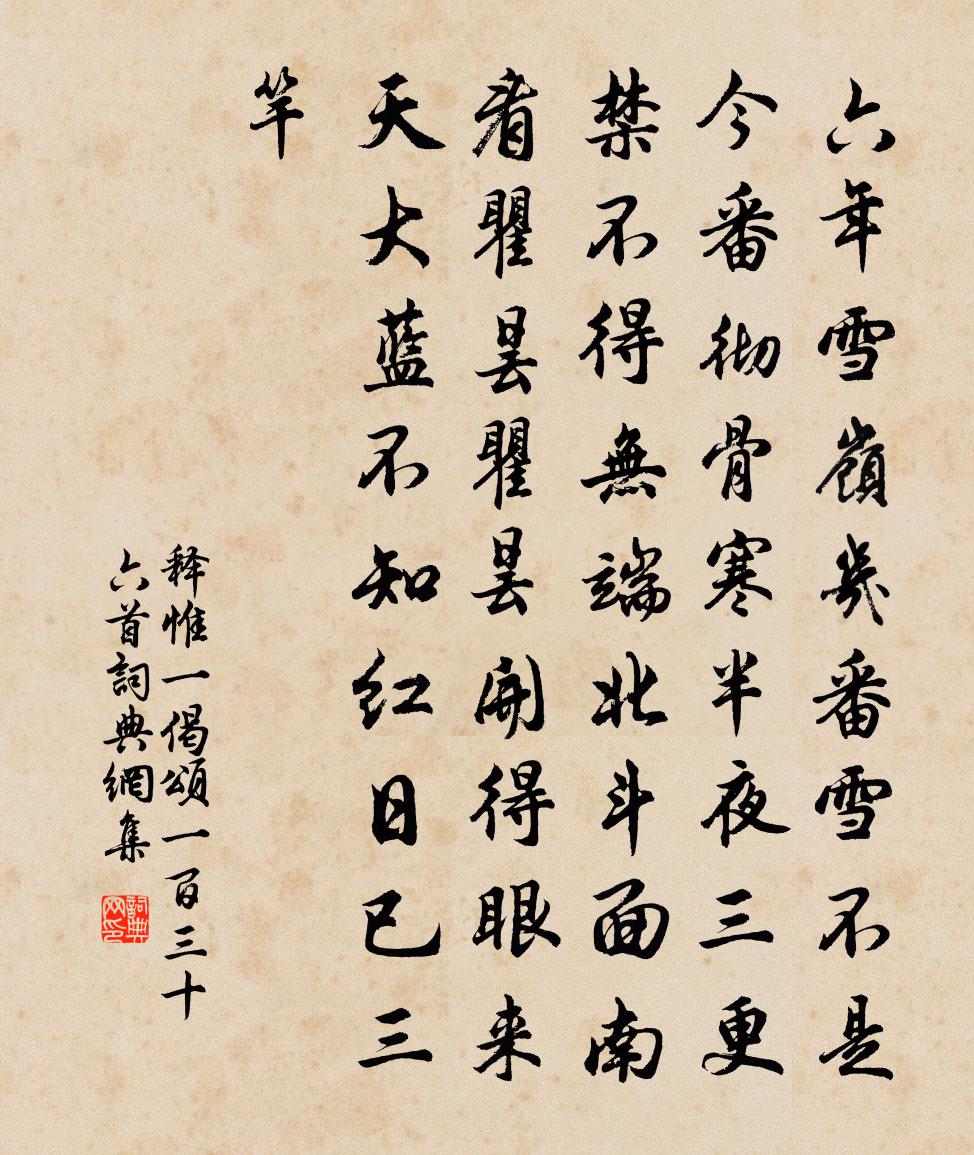 六年雪嶺幾番雪不是
今番彻骨寒半夜三更
禁不得無端北斗面南
看瞿昙瞿昙開得眼来
天大藍不知红日已三
竿
释惟一偈頌一百三十
六首詞典網集
詞典网印